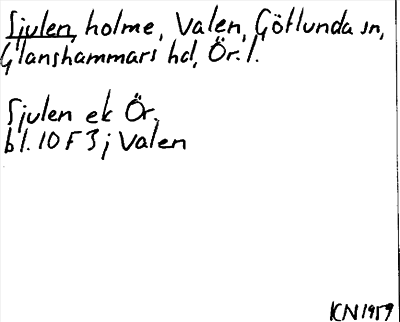 Sjulen, holme, Valen, Götlunda sn,
Glanshammars hd, Ör. l.
Sjulen ek Ör.
bl. 10 F 3 j Valen
KN 1959